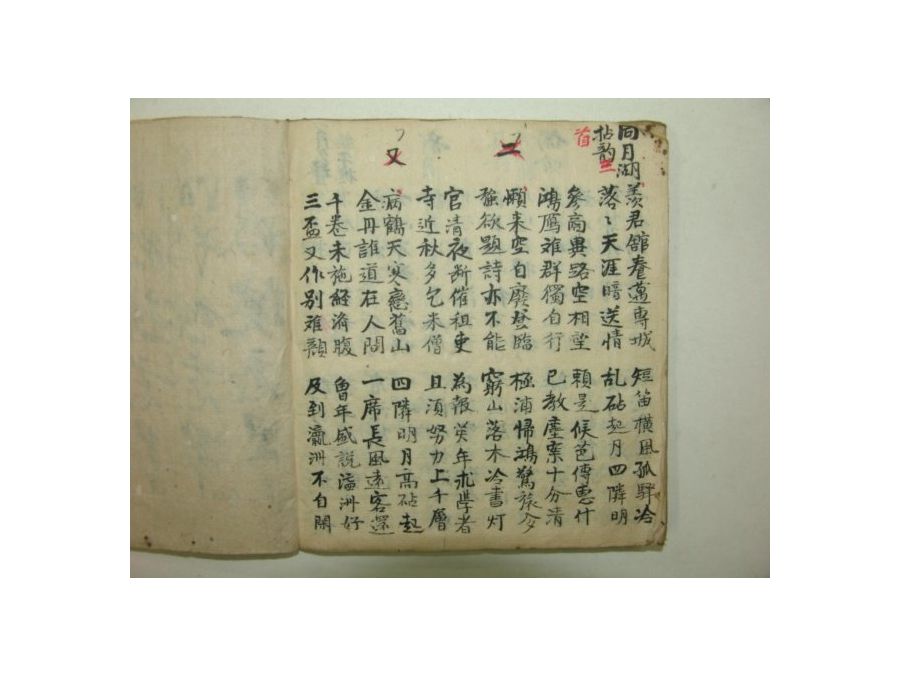 同月湖
拈韵三
首
羨君館養蓮專城 短笛橫風孤驛冷
落〻天涯暗送情 乱砧起月四隣明
參商異路空相望 賴是候芭傳惠什
鴻鴈难群獨自行 已教塵案十分清
二
懶来空白廢登臨 極浦帰鴻驚旅
強欲題詩亦不能 窮山落木冷書灯
官清夜断催租吏 為報 年求學者
寺近秋多乞米僧 且須努力上千層
又
病鶴天寒戀舊山 四隣明月高砧起
金丹誰道在人間 一席長風遠客還
千卷未施經濟腹 曾年盛說瀛洲好
三盃又作別难顏 及到瀛洲不自閑